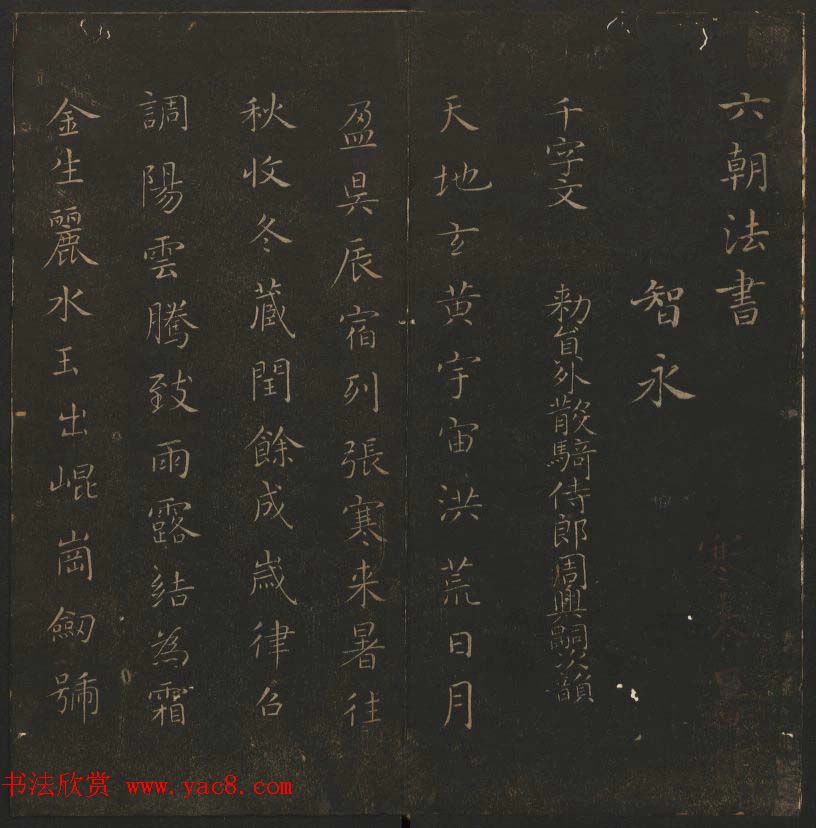 六朝法書
智永
千字文 勑貟外散騎侍郎周興嗣次韻
天地玄黄宇宙洪荒日月
盈昃辰宿列張寒来暑往
秋收冬蔵閏餘成歲律召
調陽雲騰致雨露結為霜
金生麗水玉出崐崗劒號
书法欣赏 www.yac8.com